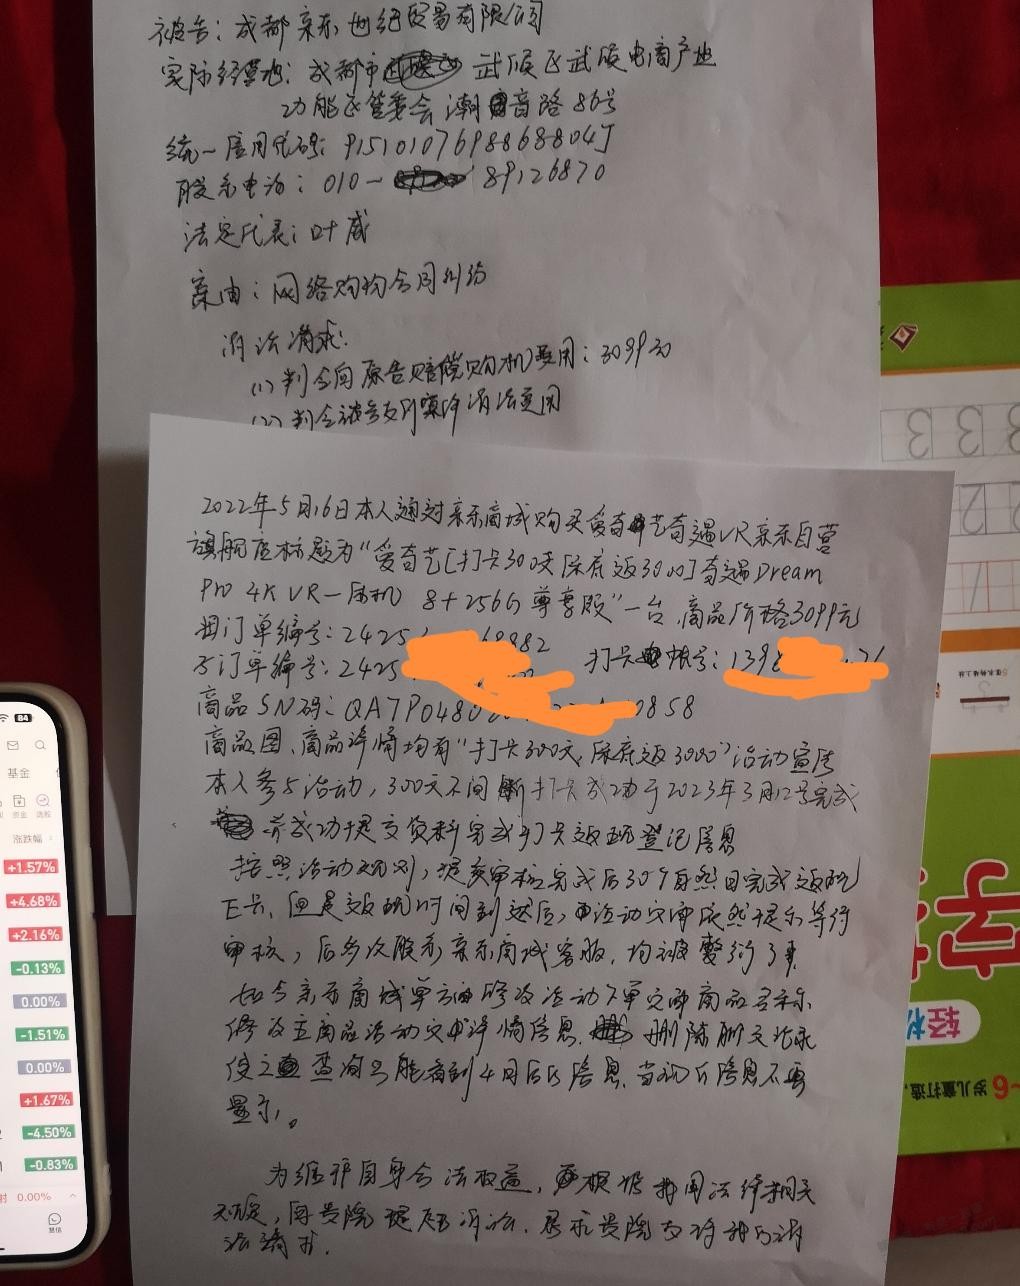 被告：成都京东世纪贸易有限公司
实际经营地：成都市 武侯区武侯电商产业
功能区管委会潮音路86号
统一信用代码：91510107698868804J
联系电话：010- 89126870
法定代表：叶威
案由：网络购物合同纠纷
诉讼请求：
(1) 判令向原告赔偿购机费用：3099元
(2) 判令被告支付 诉讼费用
2022年5月16日本人通过京东商城购买爱奇艺奇遇VR京东自营
旗舰店标题为“爱奇艺[打卡300天 返3000]奇遇Dream
Pro 4K VR一体机 8+256G 尊享版”一台,商品价格3099元
订单编号：2425 68882
订单编号：2425 打卡 帐号：139
商品SN码：QA7P048 0858
商品图、商品详情均有“打卡300天, 返3000”活动宣传
本人参与活动，300天不间断打卡成功于2023年3月12号完成
并成功提交资料完成打卡返现登记信息
按照活动规则，提交审核完成后30个自然日完成返现
E卡，但是返现时间到达后， 活动页面依然提示等待
审核，后多次联系京东商城客服，均被敷衍了事
如今京东商城单方面修改活动下单页面商品名称
修改主商品活动页面详情信息, 删除聊天记录
使之 查询只能看到4月后的信息,当初的信息不再
显示。
为维护自身合法权益， 根据 国法律相关
规定，向贵院提起诉讼. 恳求贵院支持我的诉
讼请求.
84
基金
资金
选股
涨跌幅
+1.57%
+4.68%
+2.16%
-0.13%
0.00%
-1.51%
0.00%
+1.67%
-4.50%
-0.83%
0.00%
3 3 3
2
1
学
轻松
-6岁儿童打造,